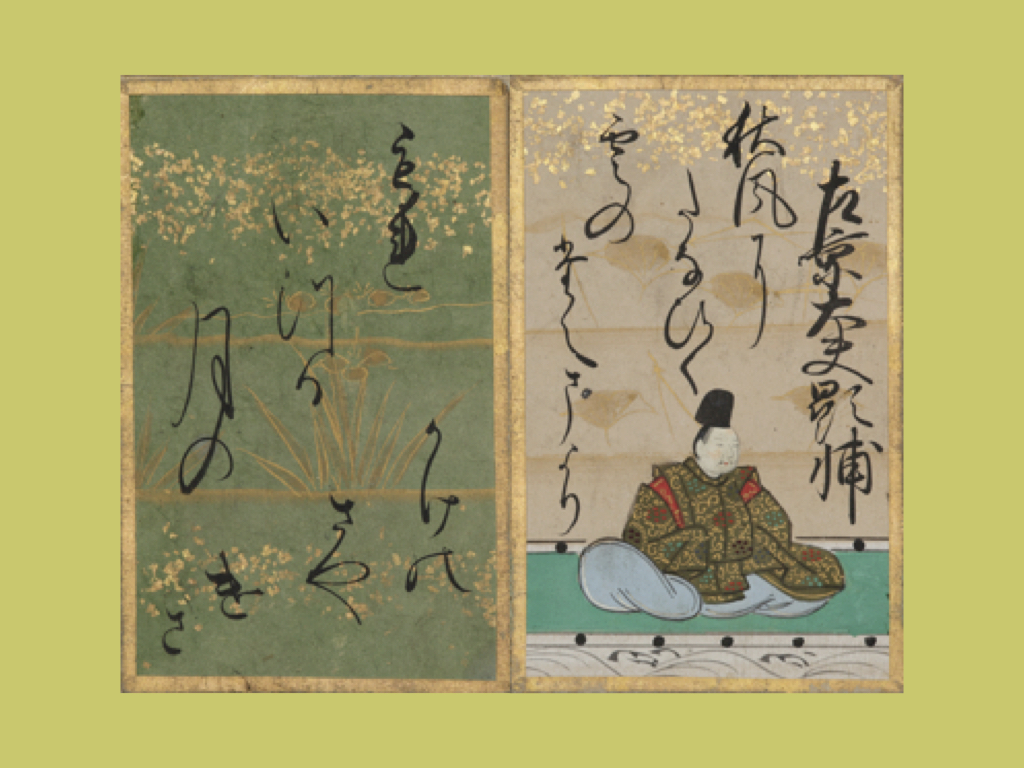 左京大夫顕輔
秋風に
たなひく
雲の
たえまより
もれ
いつる
月の
かけの
さや
けさ